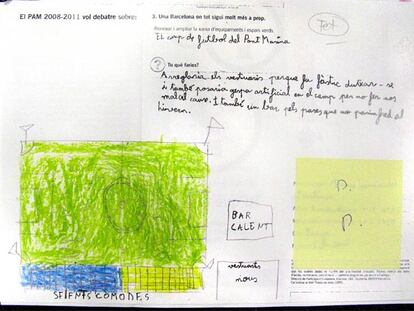 El PAM 2008-2011 vol debatre sobre:
3. Una Barcelona en tot sigui molt més a prop.
Renovar i ampliar la xarxa d'equipaments i espais verds.
El camp de futbol del Pont Marina
Tot
? Tu què faries?
Arreglaria els vestuaris perque fa fàstic dutxar-se
i també posaria gespa artificial en el camp per no fer nos
mal al caure. I també un bar pels pares que no passin fred al
hivern.
BAR
CALENT
vestuaris
nous
SEIENTS COMODES
P.
P.